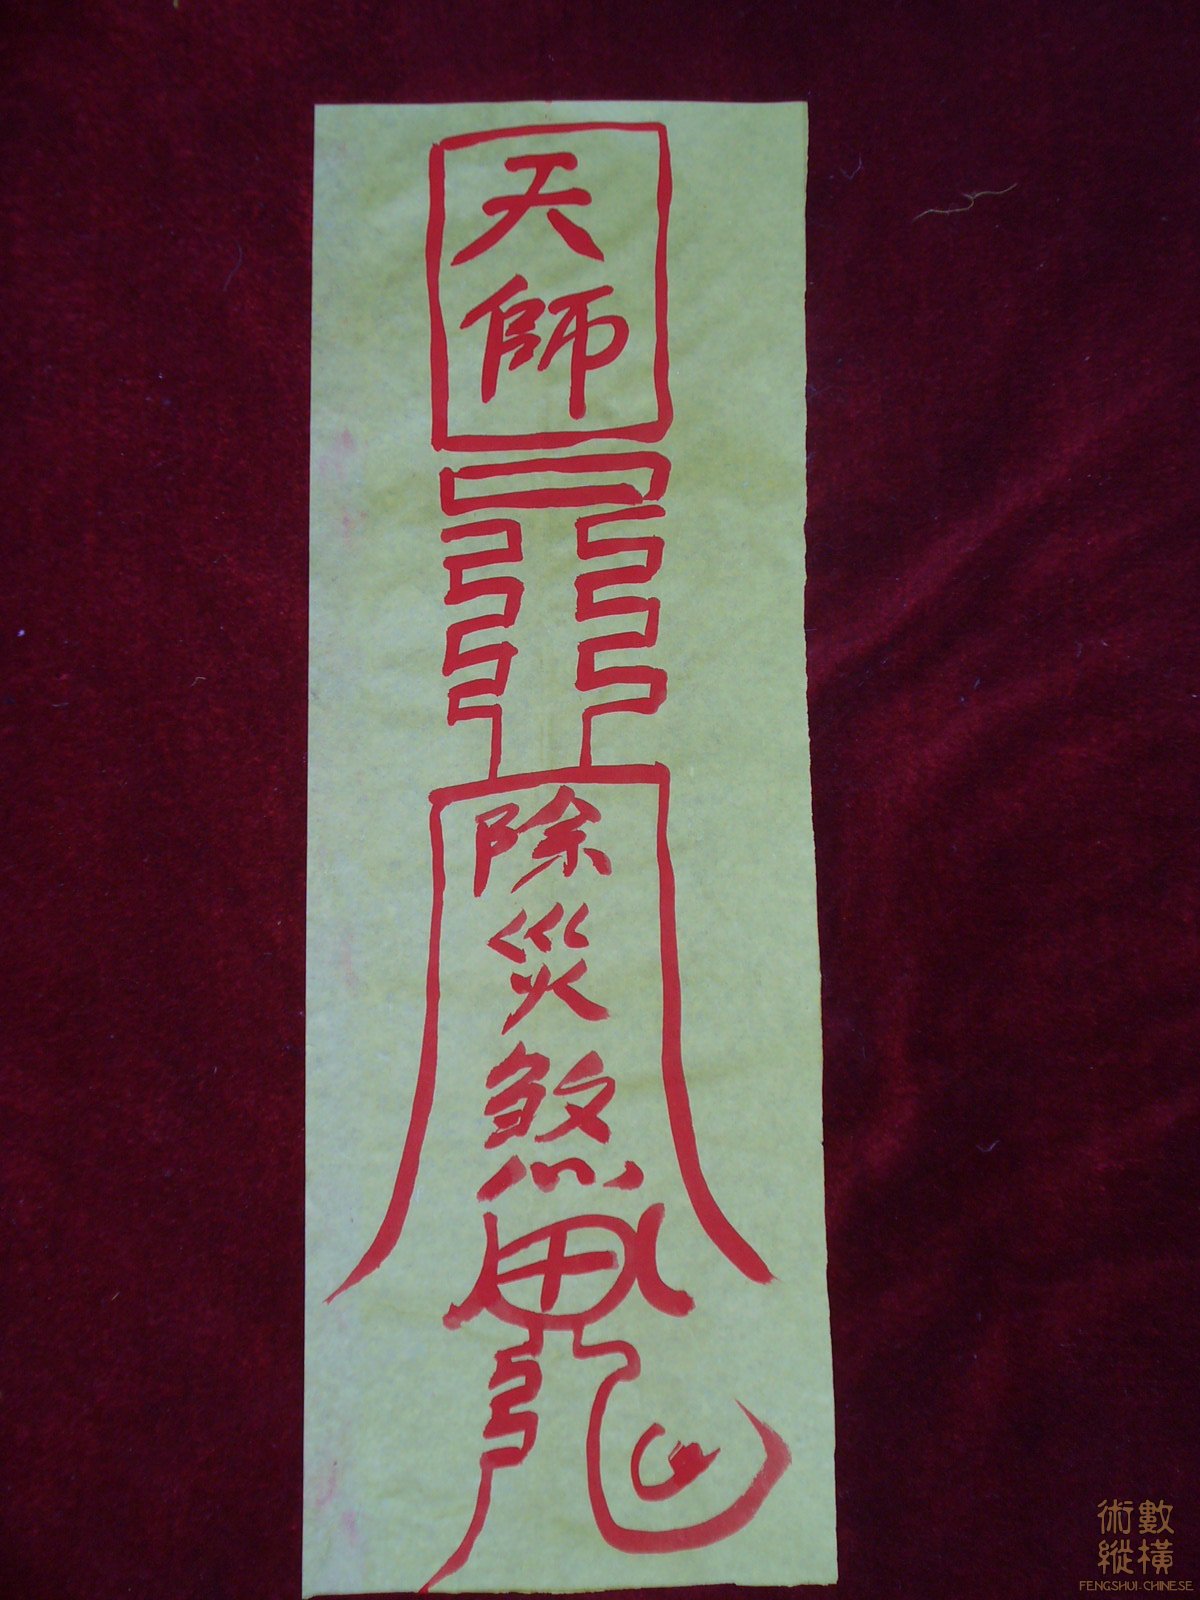 天師
除災煞
術數
縱橫
FENGSHUI-CHINESE